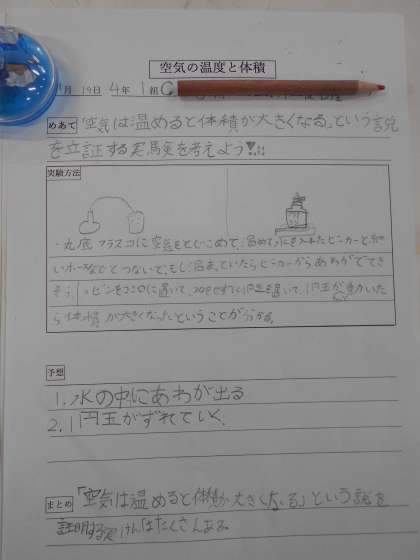 空気の温度と体積
1月 19日 4年 1組
めあて 「空気は温めると体積が大きくなる。」という説
を立証する実験を考えよう!!!
実験方法
・丸底フラスコに空気をとじこめて、温めて、水を入れたビーカーと細
いホースなどでつないで、もし温まっていたらビーカーからあわがでてき
そう。
ビンをコンロに置いて、 1円玉を置いて、1円玉が動いた
ら体積が大きくなったということが分かる。
予想
1.水の中にあわが出る
2.1円玉がずれていく。
まとめ 「空気は温めると体積が大きくなる」という説を
証明する実けんはたくさんある